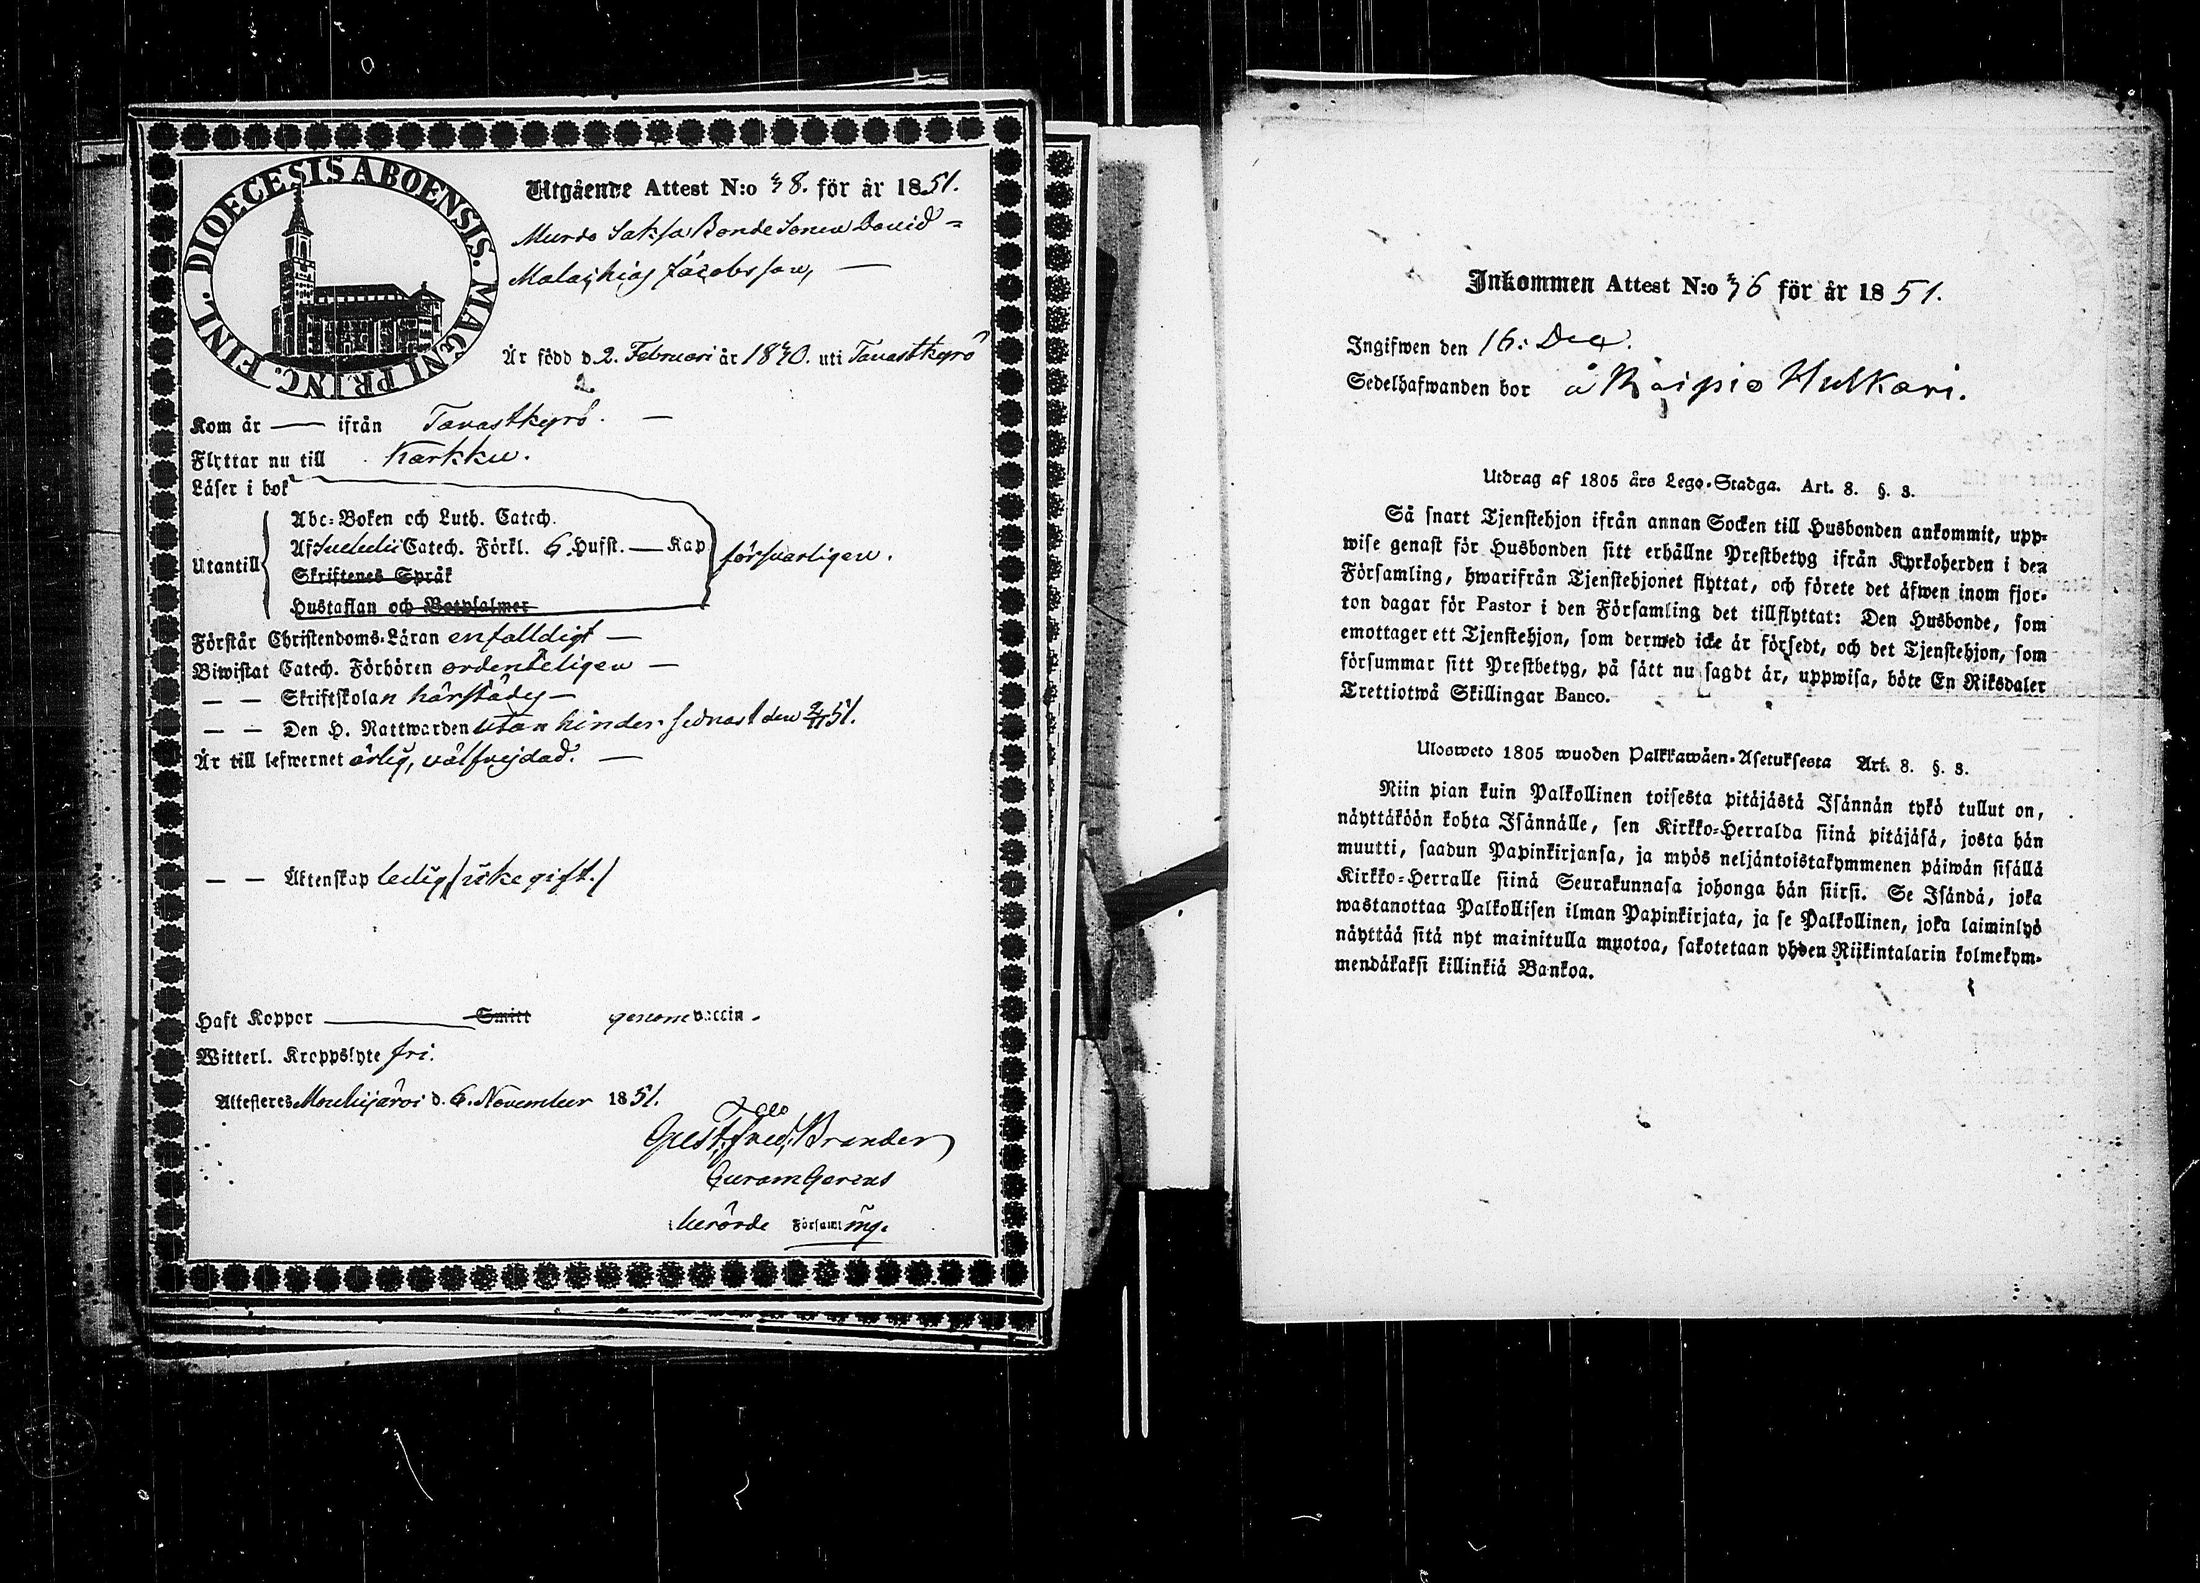 DIOECESIS ABOENSIS. MAGNI PRINC. FINL.
Utgående Attest N:o 38. för år 1851.
Murdo Saksa Bonde Sonen David
Malachias Jacobsson,
Är född d. 2. Februari år 1830. uti Tavastkyrö
Kom år — ifrån Tavastkyrö. —
Flyttar nu till Karkku.
Läser i bok
Abc-Boken och Luth. Catech.
Utantill
Af Svebelii Catech. Förkl. 6. Hufst. — Kap
försvarligen.
Skriftenes Språk
Hustaflan och Botpsalmer
Förstår Christendoms-Läran enfalldigt —
Biwistat Catech. Förhören ordenteligen —
— — Skriftskolan härstädes —
— — Den H. Nattwarden utan hinder sednast den 2/11 51.
Är till lefwernet ärlig, välfrejdad. —
— — Äktenskap ledig (icke gift.)
Haft Koppor — Smitt genom vaccin.
Witterl. Kroppslyte fri.
Attesteres Mouhijärvi d. 6. November 1851.
Gust. Fred. Brander
Curam Gerens
i berörde Församling.
Inkommen Attest N:o 36 för år 1851.
Ingifwen den 16. Dec.
Sedelhafwanden bor å Raipio Hulkari.
Utdrag af 1805 års Lego-Stadga. Art. 8. §. 3.
Så snart Tjenstehjon ifrån annan Socken till Husbonden ankommit, upp-
wise genast för Husbonden sitt erhållne Prestbetyg ifrån Kyrkoherden i den
Församling, hwarifrån Tjenstehjonet flyttat, och förete det äfwen inom fjor-
ton dagar för Pastor i den Församling det tillflyttat: Den Husbonde, som
emottager ett Tjenstehjon, som dermed icke är försedt, och det Tjenstehjon, som
försummar sitt Prestbetyg, på sätt nu sagdt är, uppwisa, böte En Riksdaler
Trettiotwå Skillingar Banco.
Ulosweto 1805 wuoden Palkkawäen-Asetuksesta Art. 8. §. 3.
Niin pian kuin Palkollinen toisesta pitäjästä Isännän tykö tullut on,
näyttäköön kohta Isännälle, sen Kirkko-Herralda siinä pitäjäsä, josta hän
muutti, saadun Papinkirjansa, ja myös neljäntoistakymmenen päiwän sisällä
Kirkko-Herralle siinä Seurakunnasa johonga hän siirsi. Se Isändä, joka
wastanottaa Palkollisen ilman Papinkirjata, ja se Palkollinen, joka laiminlyö
näyttää sitä nyt mainitulla muotoa, sakotetaan yhden Riikintalarin kolmekym-
mendäkaksi killinkiä Bankoa.